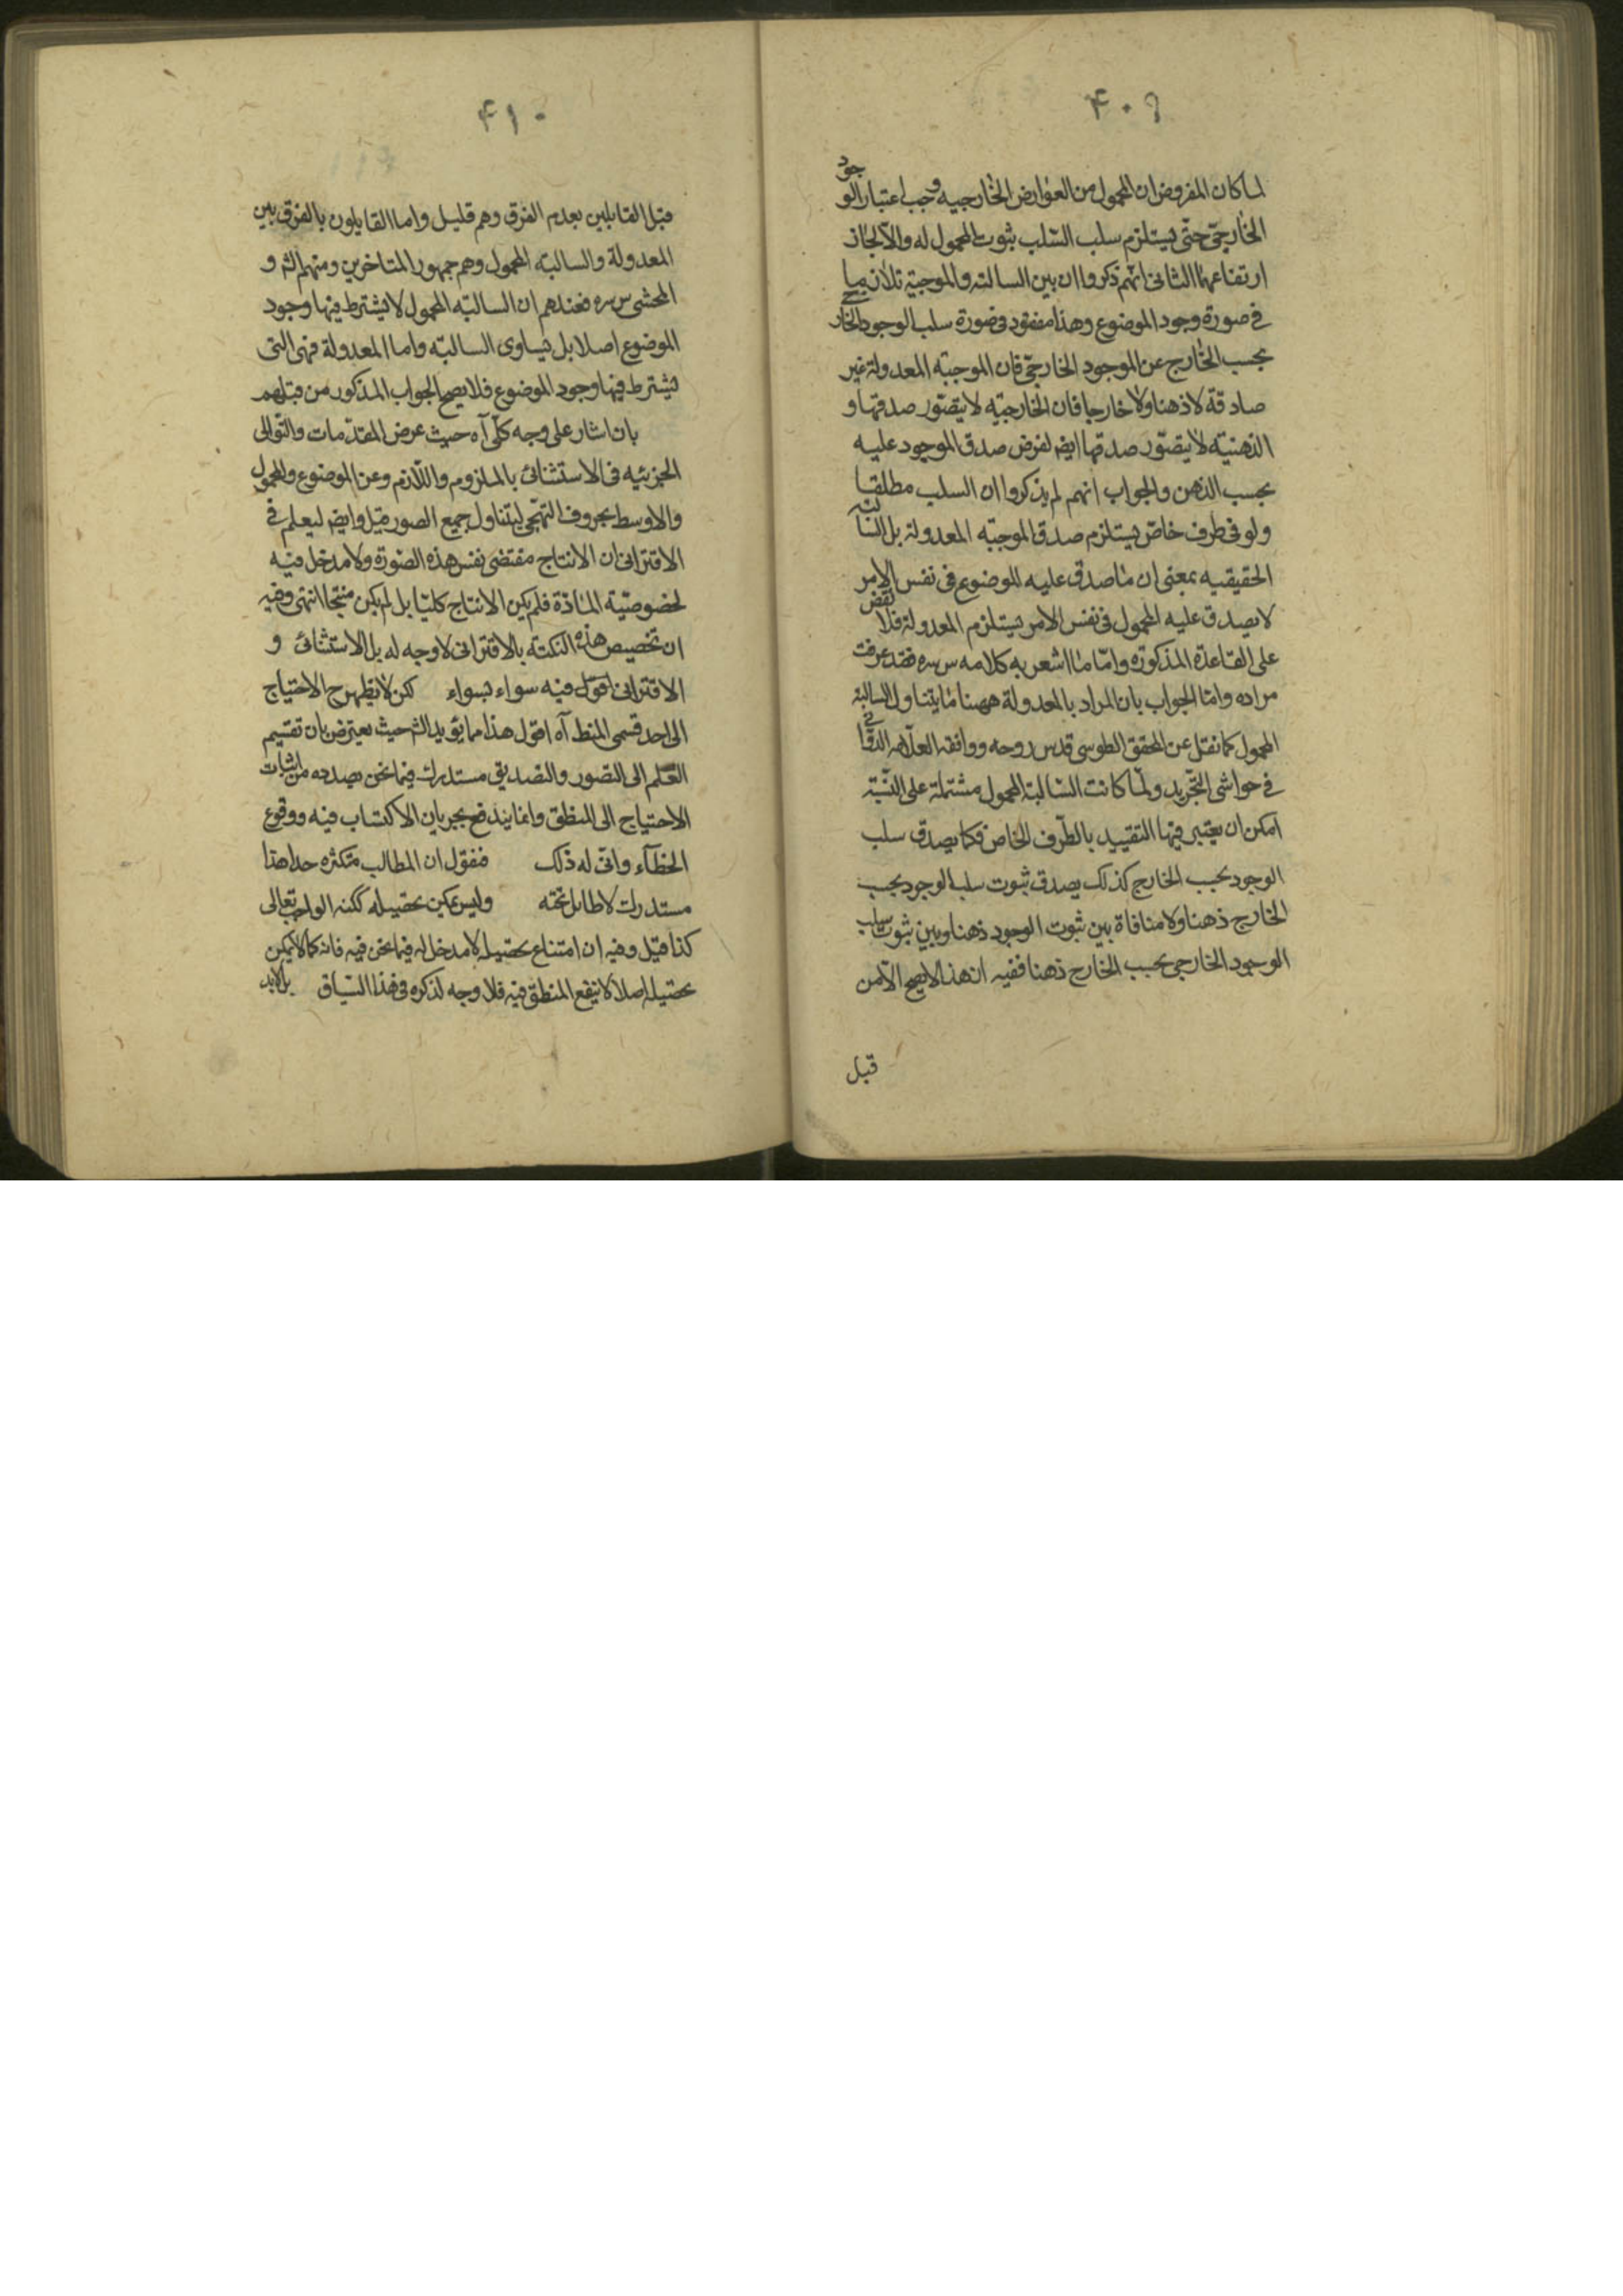 ۴۰۹
لما كان المفروض ان المحمول من العوارض الخارجيه وجب اعتبار الوجود
الخارجىّ حتّى يستلزم سلب السّلب بثبوت المحمول له والّا لجاز
ارتفاعهما الثانى انّهم ذكروا ان بين السالبة والموجبة تلازما
فى صورة وجود الموضوع وهذا مفقود فى صورة سلب الوجود الخارجى
بحسب الخارج عن الموجود الخارجىّ فان الموجبة المعدولة غير
صادقة لا ذهنا ولا خارجا فان الخارجيّه لا يتصّور صدقها و
الذهنيّة لا يتصّور صدقها ايض لفرض صدق الموجود عليه
بحسب الذهن والجواب انهم لم يذكروا ان السلب مطلقا
ولو فى ظرف خاصّ يستلزم صدق الموجبّه المعدولة بل السالبة
الحقيقيه بمعنى ان ما صدق عليه الموضوع فى نفس الامر
لا يصدق عليه المحمول فى نفس الامر يستلزم المعدولة فلا نقض
على القاعدة المذكورة وامّا ما اشعر به كلامه س سره فقد عرفت
مراده وامّا الجواب بان المراد بالمعدولة ههنا ما يتناول السالبة
المحمول كما نقل عن المحقق الطوسى قدس روحه ووافقه العلّامه الدوّانى
فى حواشى التجّريد ولمّا كانت السّالبة المحمول مشتملة على النسّبة
امكن ان يعتبر فيها التقييد بالظّرف الخاص فكما يصدق سلب
الوجود بحسب الخارج كذلك يصدق ثبوت سلب الوجود بحسب
الخارج ذهنا ولا منافاة بين ثبوت الوجود ذهنا وبين ثبوت سلب
الوجود الخارجى بحسب الخارج ذهنا ففيه ان هذا لا يصح الّا من
قبل
۴۱۰
قبل القائلين بعدم الفرق وهم قليل واما القايلون بالفرق بين
المعدولة والسالبه المحمول وهم جمهور المتاخرين ومنهم الش و
المحشى س سره فعندهم ان السالبّه المحمول لا يشترط فيها وجود
الموضوع اصلا بل يساوى السالبّه واما المعدولة فهى التى
يشترط فيها وجود الموضوع فلا يصح الجواب المذكور من قبلهم
بان اشار على وجه كلّى آه حيث عرض المقدّمات والتّوالى
الجزئيه فى الاستثنائى بالملزوم واللّازم وعن الموضوع والمحمول
والاوسط بحروف التهجّى ليتناول جميع الصور قيل وايض ليعلم فى
الاقترانى ان الانتاج مقتضى نفس هذه الصّورة ولا مدخل فيه
لخصوصيّة المادّة فلم يكن الانتاج كليّا بل لم يكن منتجا انتهى وفيه
ان تخصيص هذه النكتة بالاقترانى لا وجه له بل الاستثنائى و
الاقترانى فيه سواء بسواء لكن لا يظهر ح الاحتياج
الى احد قسمى المنط آه اقول هذا مما يؤيد الش حيث يعترض بان تقسيم
العلم الى التصور والتصديق مستدرك فيما نحن بصدده من اثبات
الاحتياج الى المنطق وانما يندفع بجريان الاكتساب فيه ووقوع
الخطآء وانّى له ذلك فنقول ان المطالب متكثره جدا هذا
مستدرك لا طايل تحته وليس يمكن تحصيله ككنه الواجب تعالى
كذا قيل وفيه ان امتناع تحصيله لا مدخل له فيما نحن فيه فانه كما لا يمكن
تحصيله اصلا لا ينفع المنطق فيه فلا وجه لذكره فى هذا السّياق بل لا بد